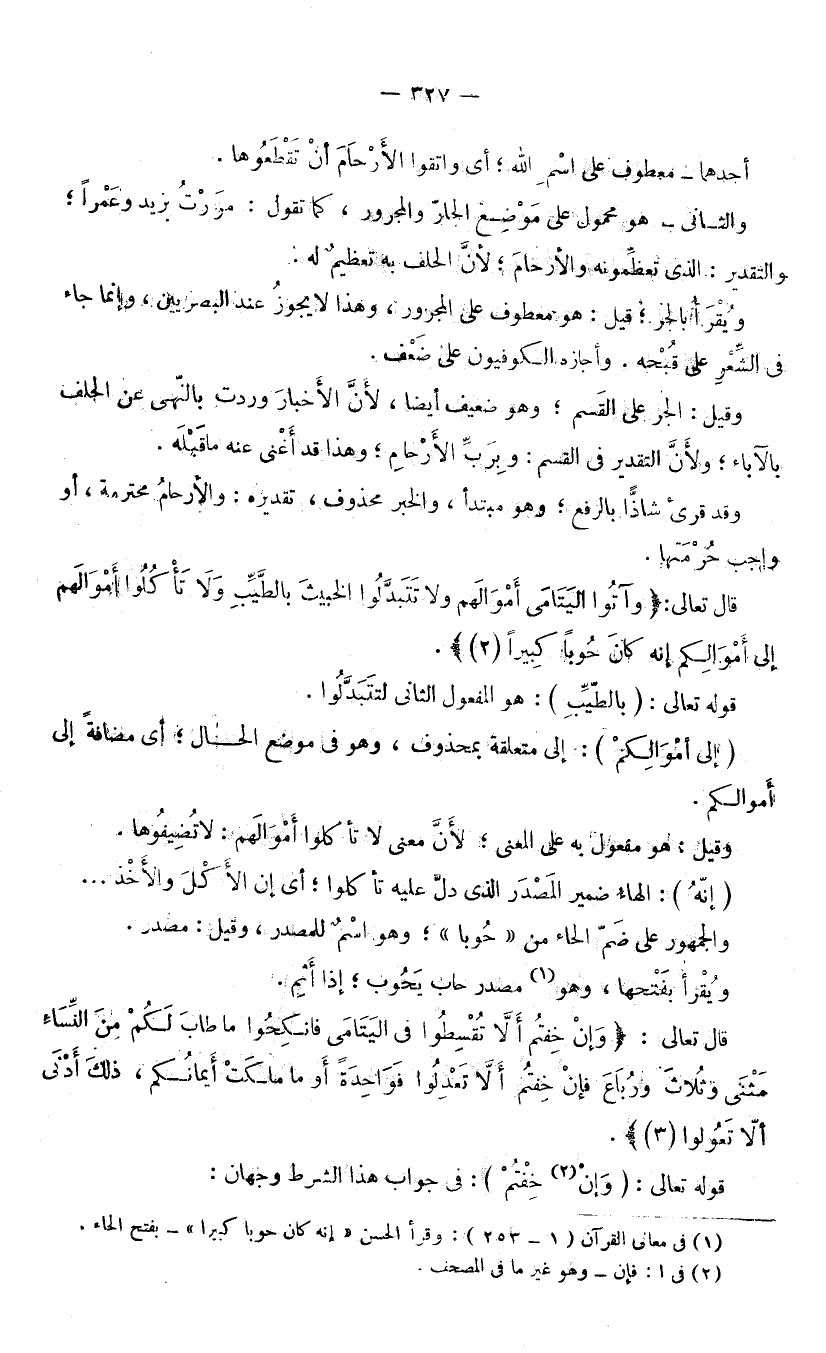 — ٣٢٧ —
أحدها – معطوف على اسْمِ الله ؛ أى واتقوا الأَرْحَامَ أنْ تَقْطَعُوها .
والثـانى – هو محمول على مَوْضِـع الجارّ والمجرور ، كما تقول : مرَرْتُ بزيد وعَمْراً ؛
والتقدير : الذى تعظِّمونه والأرحامَ ؛ لأنَّ الحلف به تعظيمٌ له .
ويُقْرَأُ بالجر ؛ قيل : هو معطوف على المجرور ، وهذا لا يجوزُ عند البصريين ، وإنما جاء
فى الشِّعْرِ على قُبْحِه . وأجازه الـكوفيون على ضَعْف .
وقيل : الجر على القَسم ؛ وهو ضعيف أيضا ، لأنَّ الأَخبارَ وردت بالنّهى عن الحلف
بالآباء ؛ ولأنَّ التقدير فى القسم : وبِرَبِّ الأَرْحامِ ؛ وهذا قد أَغْنى عنه ما قَبْلَه .
وقد قرىْ شاذًّا بالرفع ؛ وهو مبتدأ ، والخبر محذوف ، تقديره : والأرحامُ محترمة ، أو
واجب حُرْمَتها .
قال تعالى: ﴿ وآتُوا اليَتَامَى أَمْوَالَهم ولا تَتَبدَّلُوا الخبيثَ بالطَّيِّبِ وَلَا تَأْكُلُوا أَمْوَالَهم
إلى أَمْوَالِـكم إنه كانَ حُوباً كَبِيراً (٢) ﴾ .
قوله تعالى : ( بالطَّيِّبِ ) : هو المفعول الثانى لتتَبَدَّلُوا .
( إلى أمْوَالِـكمْ ) : إلى متعلقة بمحذوف ، وهو فى موضع الحـال ؛ أى مضافةً إلى
أموالـكم .
وقيل : هو مفعول به على المعنى ؛ لأنَّ معنى لا تأكلوا أَمْوَالَهم : لاتُضِيفُوها .
( إنّهُ ) : الهاء ضمير المَصْدَر الذى دلَّ عليه تأكلوا ؛ أى إن الأَكْلَ والأَخْذ ...
والجمهور على ضَمّ الحاء من « حُوبا » ؛ وهو اسْمٌ للمصدر ، وقيل : مصدر .
ويُقْرأ بفَتْحها ، وهو(١) مصدر حاب يَحُوب ؛ إذا أَثِم .
قال تعالى : ﴿ وَإنْ خِفتُم أَلَّا تُقْسِطُوا فى اليَتامَى فانـكِحُوا ما طابَ لَـكُمْ مِنَ النِّسَاءِ
مَثْنَى وَثُلاثَ ورُبَاعَ فإنْ خِفتُمْ أَلَّا تَعْدِلُوا فَوَاحِدَةً أو ما ملـكَتْ أيمانُـكم ، ذلكَ أَدْنَى
ألّا تَعُولوا (٣) ﴾ .
قوله تعالى : ( وَإنْ(٢) خِفْتُمْ ) : فى جواب هذا الشرط وجهان :
(١) فى معانى القرآن ( ١ – ٢٥٣ ) : وقرأ الحسن « إنه كان حوبا كبيرا » – بفتح الحاء .
(٢) فى ا : فإن – وهو غير ما فى المصحف .